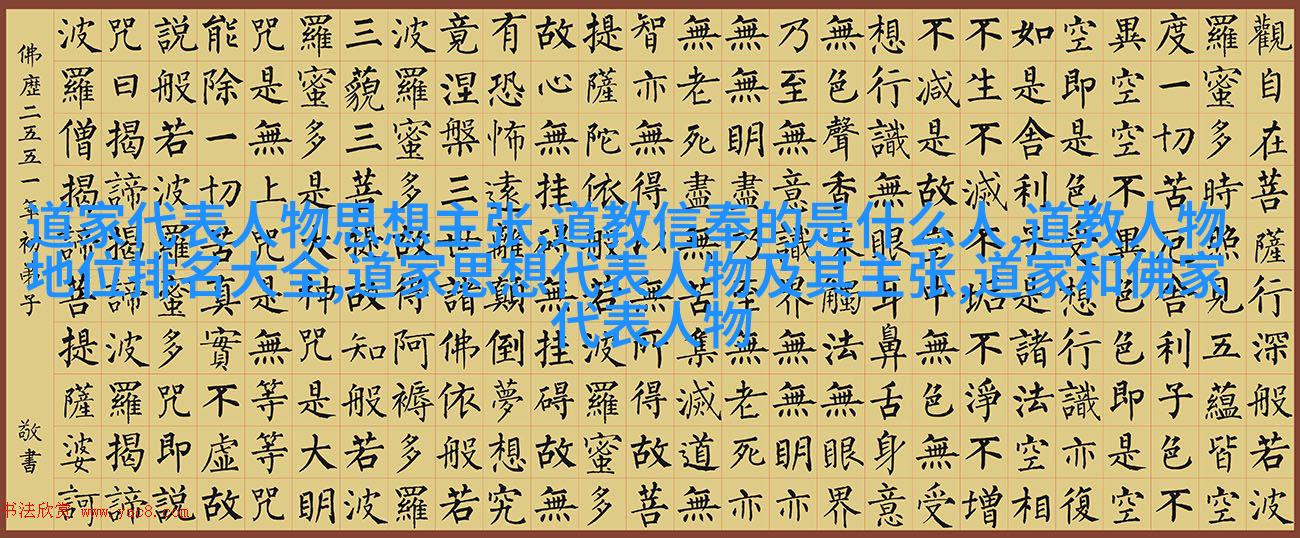 觀自在菩薩行深般若波
羅蜜多時照見五蘊皆空
度一切苦厄舍利子色不
異空空不異色色即是空
空即是色受想行識亦復
如是舍利子是諸法空相
不生不滅不垢不淨不增
不減是故空中無色無受
想行識無眼耳鼻舌身意
無色聲香味觸法無眼界
乃至無意識界無無明亦
無無明盡乃至無老死亦
無老死盡無苦集滅道無
智亦無得以無所得故菩
提薩陀依般若波羅蜜多
故心無挂礙無挂礙故無
有恐怖遠離顛倒夢想究
竟涅槃三世諸佛依般若
波羅蜜多故得阿褥多羅
三藐三菩提故知般若波
羅蜜多是大神咒是大明
咒是無上咒是無等等咒
能除一切苦真實不虛故
說般若波羅蜜多咒即說
咒曰揭諦揭諦波羅揭諦
波羅僧揭菩提薩婆訶
佛歷二五五一年初 弟子 敬書
道家代表人物思想主张,道教信奉的是什么人,道教人物
地位排名大全,道家思想代表人物及其主张,道家和佛家
代表人物
书法欣赏 www.yac8.com